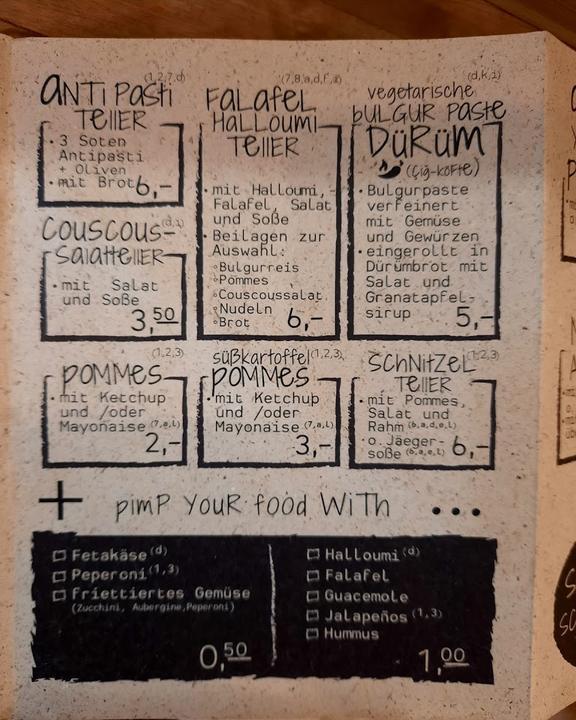 (1,2,7,d)
ANTI PASTI
TELLER
• 3 Soten
Antipasti
+ Oliven
• mit Brot 6,-
(7,8,a,d,f,j)
FALAFEL
HALLOUMI
TELLER
• mit Halloumi,
Falafel, Salat
und Soße
• Beilagen zur
Auswahl:
◦Bulgurreis
◦Pommes
◦Couscoussalat
◦Nudeln
◦Brot 6,-
(d,k,i)
vegetarische
BULGUR PASTE
DÜRÜM
(Çiğ-KÖFTE)
• Bulgurpaste
verfeinert
mit Gemüse
und Gewürzen
• eingerollt in
Dürümbrot mit
Salat und
Granatapfel-
sirup 5,-
COUSCOUS- (d,i)
SALATTELLER
• mit Salat
und Soße
3,50
(1,2,3)
POMMES
• mit Ketchup
und /oder
Mayonaise (7,e,l)
2,-
SÜßKARTOFFEL (1,2,3)
POMMES
• mit Ketchup
und /oder
Mayonaise (7,e,l)
3,-
SCHNITZEL (1,2,3)
TELLER
• mit Pommes,
Salat und
Rahm (6,a,d,e,l)
o.Jäeger-
soße (6,a,e,l) 6,-
+ PIMP YOUR FOOD WITH ...
Fetakäse (d)
Peperoni (1,3)
friettiertes Gemüse
(Zucchini, Aubergine,Peperoni)
0,50
Halloumi (d)
Falafel
Guacemole
Jalapeños (1,3)
Hummus
1,00